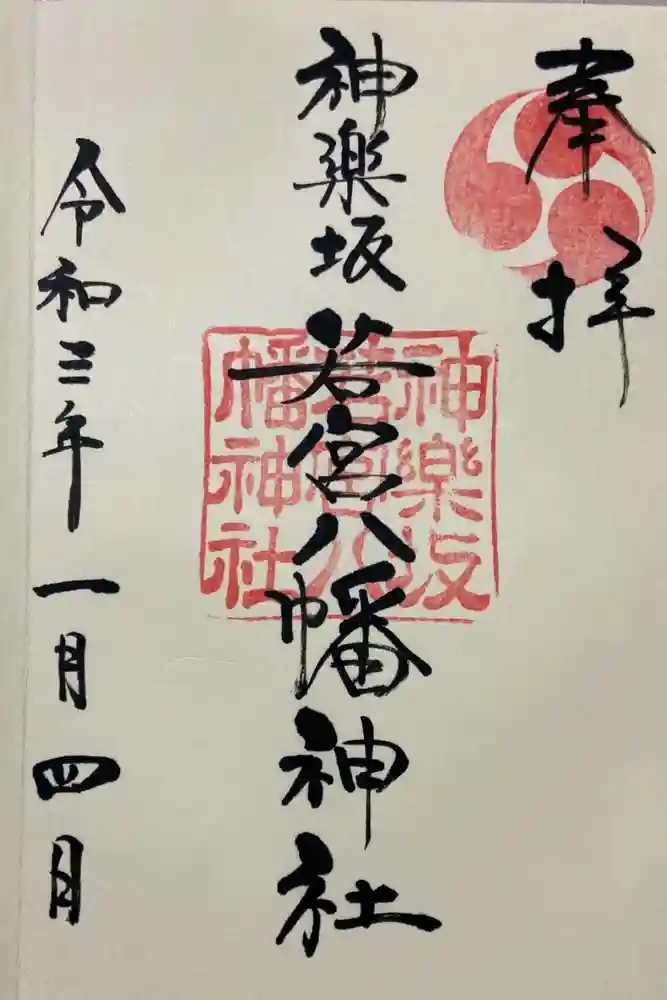 奉拝
神楽坂若宮八幡神社
神樂坂
若宮八
幡神社
令和三年一月四月